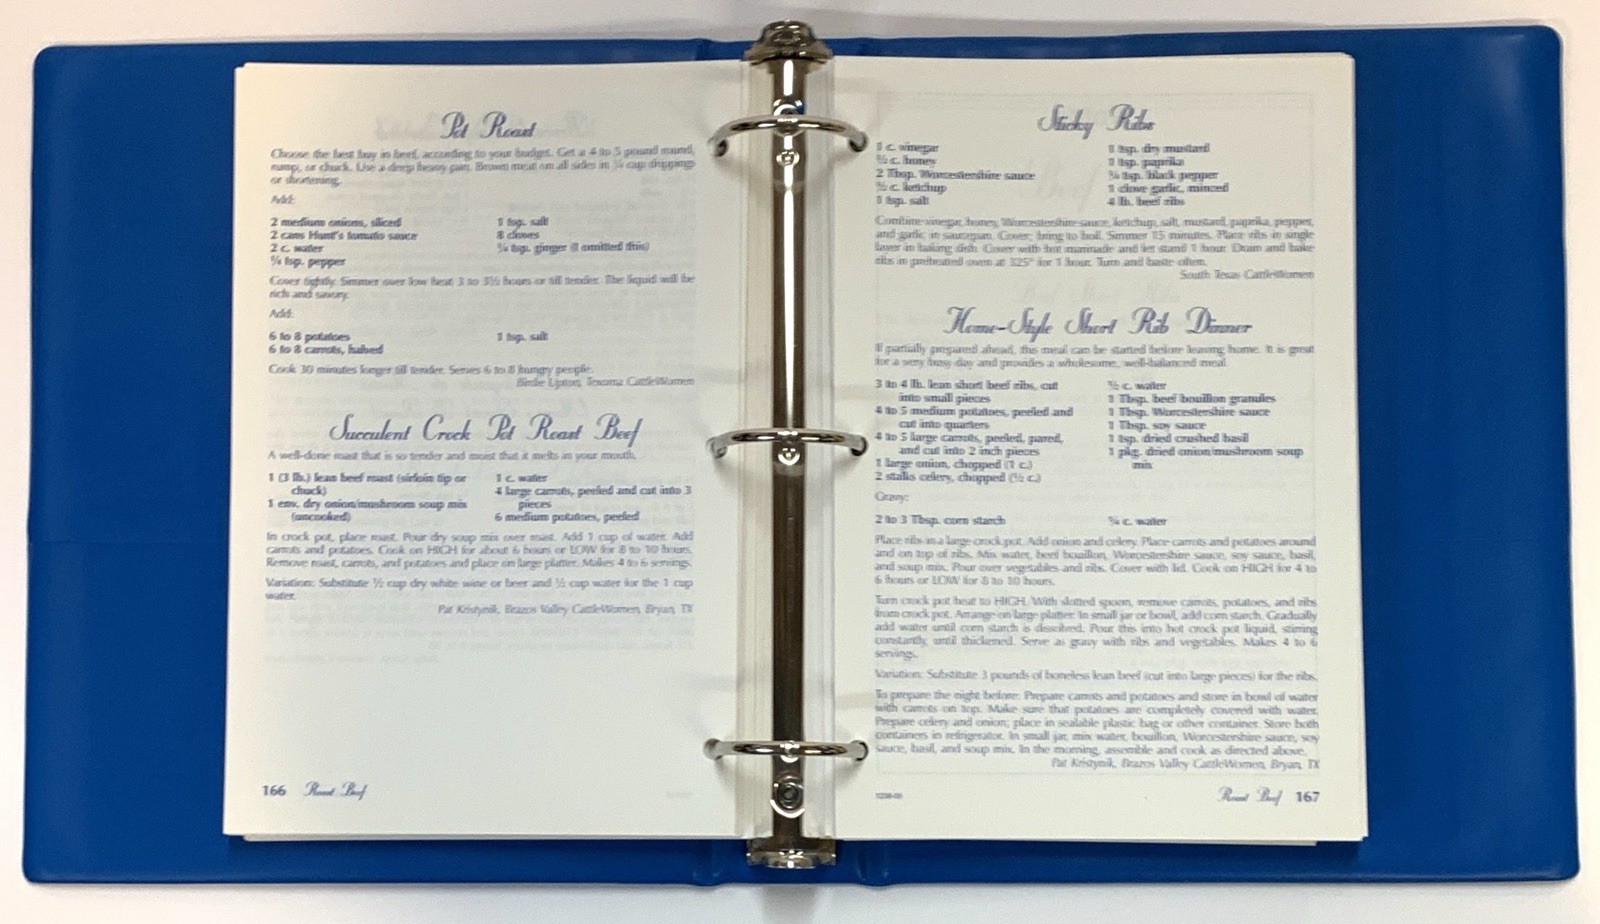 Pot Roast
Choose the best buy in beef, according to your budget. Get a 4 to 5 pound round,
rump, or chuck. Use a deep heavy pan. Brown meat on all sides in ¼ cup drippings
or shortening.
Add:
2 medium onions, sliced
2 cans Hunt's tomato sauce
2 c. water
¼ tsp. pepper
1 tsp. salt
8 cloves
¼ tsp. ginger (I omitted this)
Cover tightly. Simmer over low heat 3 to 3½ hours or till tender. The liquid will be
rich and savory.
Add:
6 to 8 potatoes
6 to 8 carrots, halved
1 tsp. salt
Cook 30 minutes longer till tender. Serves 6 to 8 hungry people.
Birdie Lipton, Texoma CattleWomen
Succulent Crock Pot Roast Beef
A well-done roast that is so tender and moist that it melts in your mouth.
1 (3 lb.) lean beef roast (sirloin tip or
chuck)
1 env. dry onion/mushroom soup mix
(uncooked)
1 c. water
4 large carrots, peeled and cut into 3
pieces
6 medium potatoes, peeled
In crock pot, place roast. Pour dry soup mix over roast. Add 1 cup of water. Add
carrots and potatoes. Cook on HIGH for about 6 hours or LOW for 8 to 10 hours.
Remove roast, carrots, and potatoes and place on large platter. Makes 4 to 6 servings.
Variation: Substitute ½ cup dry white wine or beer and ½ cup water for the 1 cup
water.
Pat Kristynik, Brazos Valley CattleWomen, Bryan, TX
166 Roast Beef
Sticky Ribs
1 c. vinegar
½ c. honey
2 Tbsp. Worcestershire sauce
½ c. ketchup
1 tsp. salt
1 tsp. dry mustard
1 tsp. paprika
¼ tsp. black pepper
1 clove garlic, minced
4 lb. beef ribs
Combine vinegar, honey, Worcestershire sauce, ketchup, salt, mustard, paprika, pepper,
and garlic in saucepan. Cover; bring to boil. Simmer 15 minutes. Place ribs in single
layer in baking dish. Cover with hot marinade and let stand 1 hour. Drain and bake
ribs in preheated oven at 325° for 1 hour. Turn and baste often.
South Texas CattleWomen
Home-Style Short Rib Dinner
If partially prepared ahead, this meal can be started before leaving home. It is great
for a very busy day and provides a wholesome, well-balanced meal.
3 to 4 lb. lean short beef ribs, cut
into small pieces
4 to 5 medium potatoes, peeled and
cut into quarters
4 to 5 large carrots, peeled, pared,
and cut into 2 inch pieces
1 large onion, chopped (1 c.)
2 stalks celery, chopped (½ c.)
½ c. water
1 Tbsp. beef bouillon granules
1 Tbsp. Worcestershire sauce
1 Tbsp. soy sauce
1 tsp. dried crushed basil
1 pkg. dried onion/mushroom soup
mix
Gravy:
2 to 3 Tbsp. corn starch
¼ c. water
Place ribs in a large crock pot. Add onion and celery. Place carrots and potatoes around
and on top of ribs. Mix water, beef bouillon, Worcestershire sauce, soy sauce, basil,
and soup mix. Pour over vegetables and ribs. Cover with lid. Cook on HIGH for 4 to
6 hours or LOW for 8 to 10 hours.
Turn crock pot heat to HIGH. With slotted spoon, remove carrots, potatoes, and ribs
from crock pot. Arrange on large platter. In small jar or bowl, add corn starch. Gradually
add water until corn starch is dissolved. Pour this into hot crock pot liquid, stirring
constantly, until thickened. Serve as gravy with ribs and vegetables. Makes 4 to 6
servings.
Variation: Substitute 3 pounds of boneless lean beef (cut into large pieces) for the ribs.
To prepare the night before: Prepare carrots and potatoes and store in bowl of water
with carrots on top. Make sure that potatoes are completely covered with water.
Prepare celery and onion; place in sealable plastic bag or other container. Store both
containers in refrigerator. In small jar, mix water, bouillon, Worcestershire sauce, soy
sauce, basil, and soup mix. In the morning, assemble and cook as directed above.
Pat Kristynik, Brazos Valley CattleWomen, Bryan, TX
Roast Beef 167